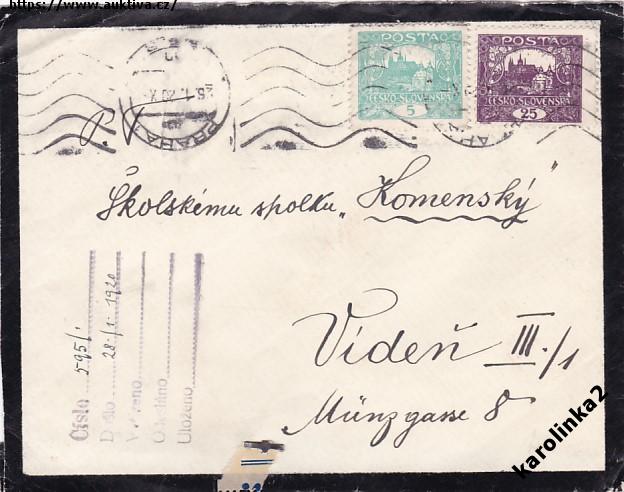 https://www.auktiva.cz/
POŠTA
ČESKO-SLOVENSKÁ
5
POŠTA
ČESKO-SLOVENSKÁ
25
PRAHA
Školskému spolku „Komenský“
Vídeň III./1
Münzgasse 8
Číslo 595/1.
Došlo 28/I 1920
Vyřízeno
Uloženo
karolinka2